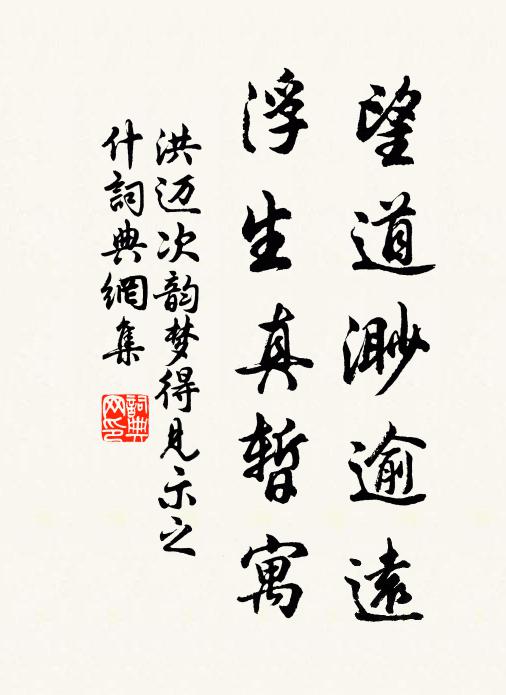 望道渺逾遠
浮生真暫寓
洪迈次韵梦得见示之
什詞典網集
詞典网印